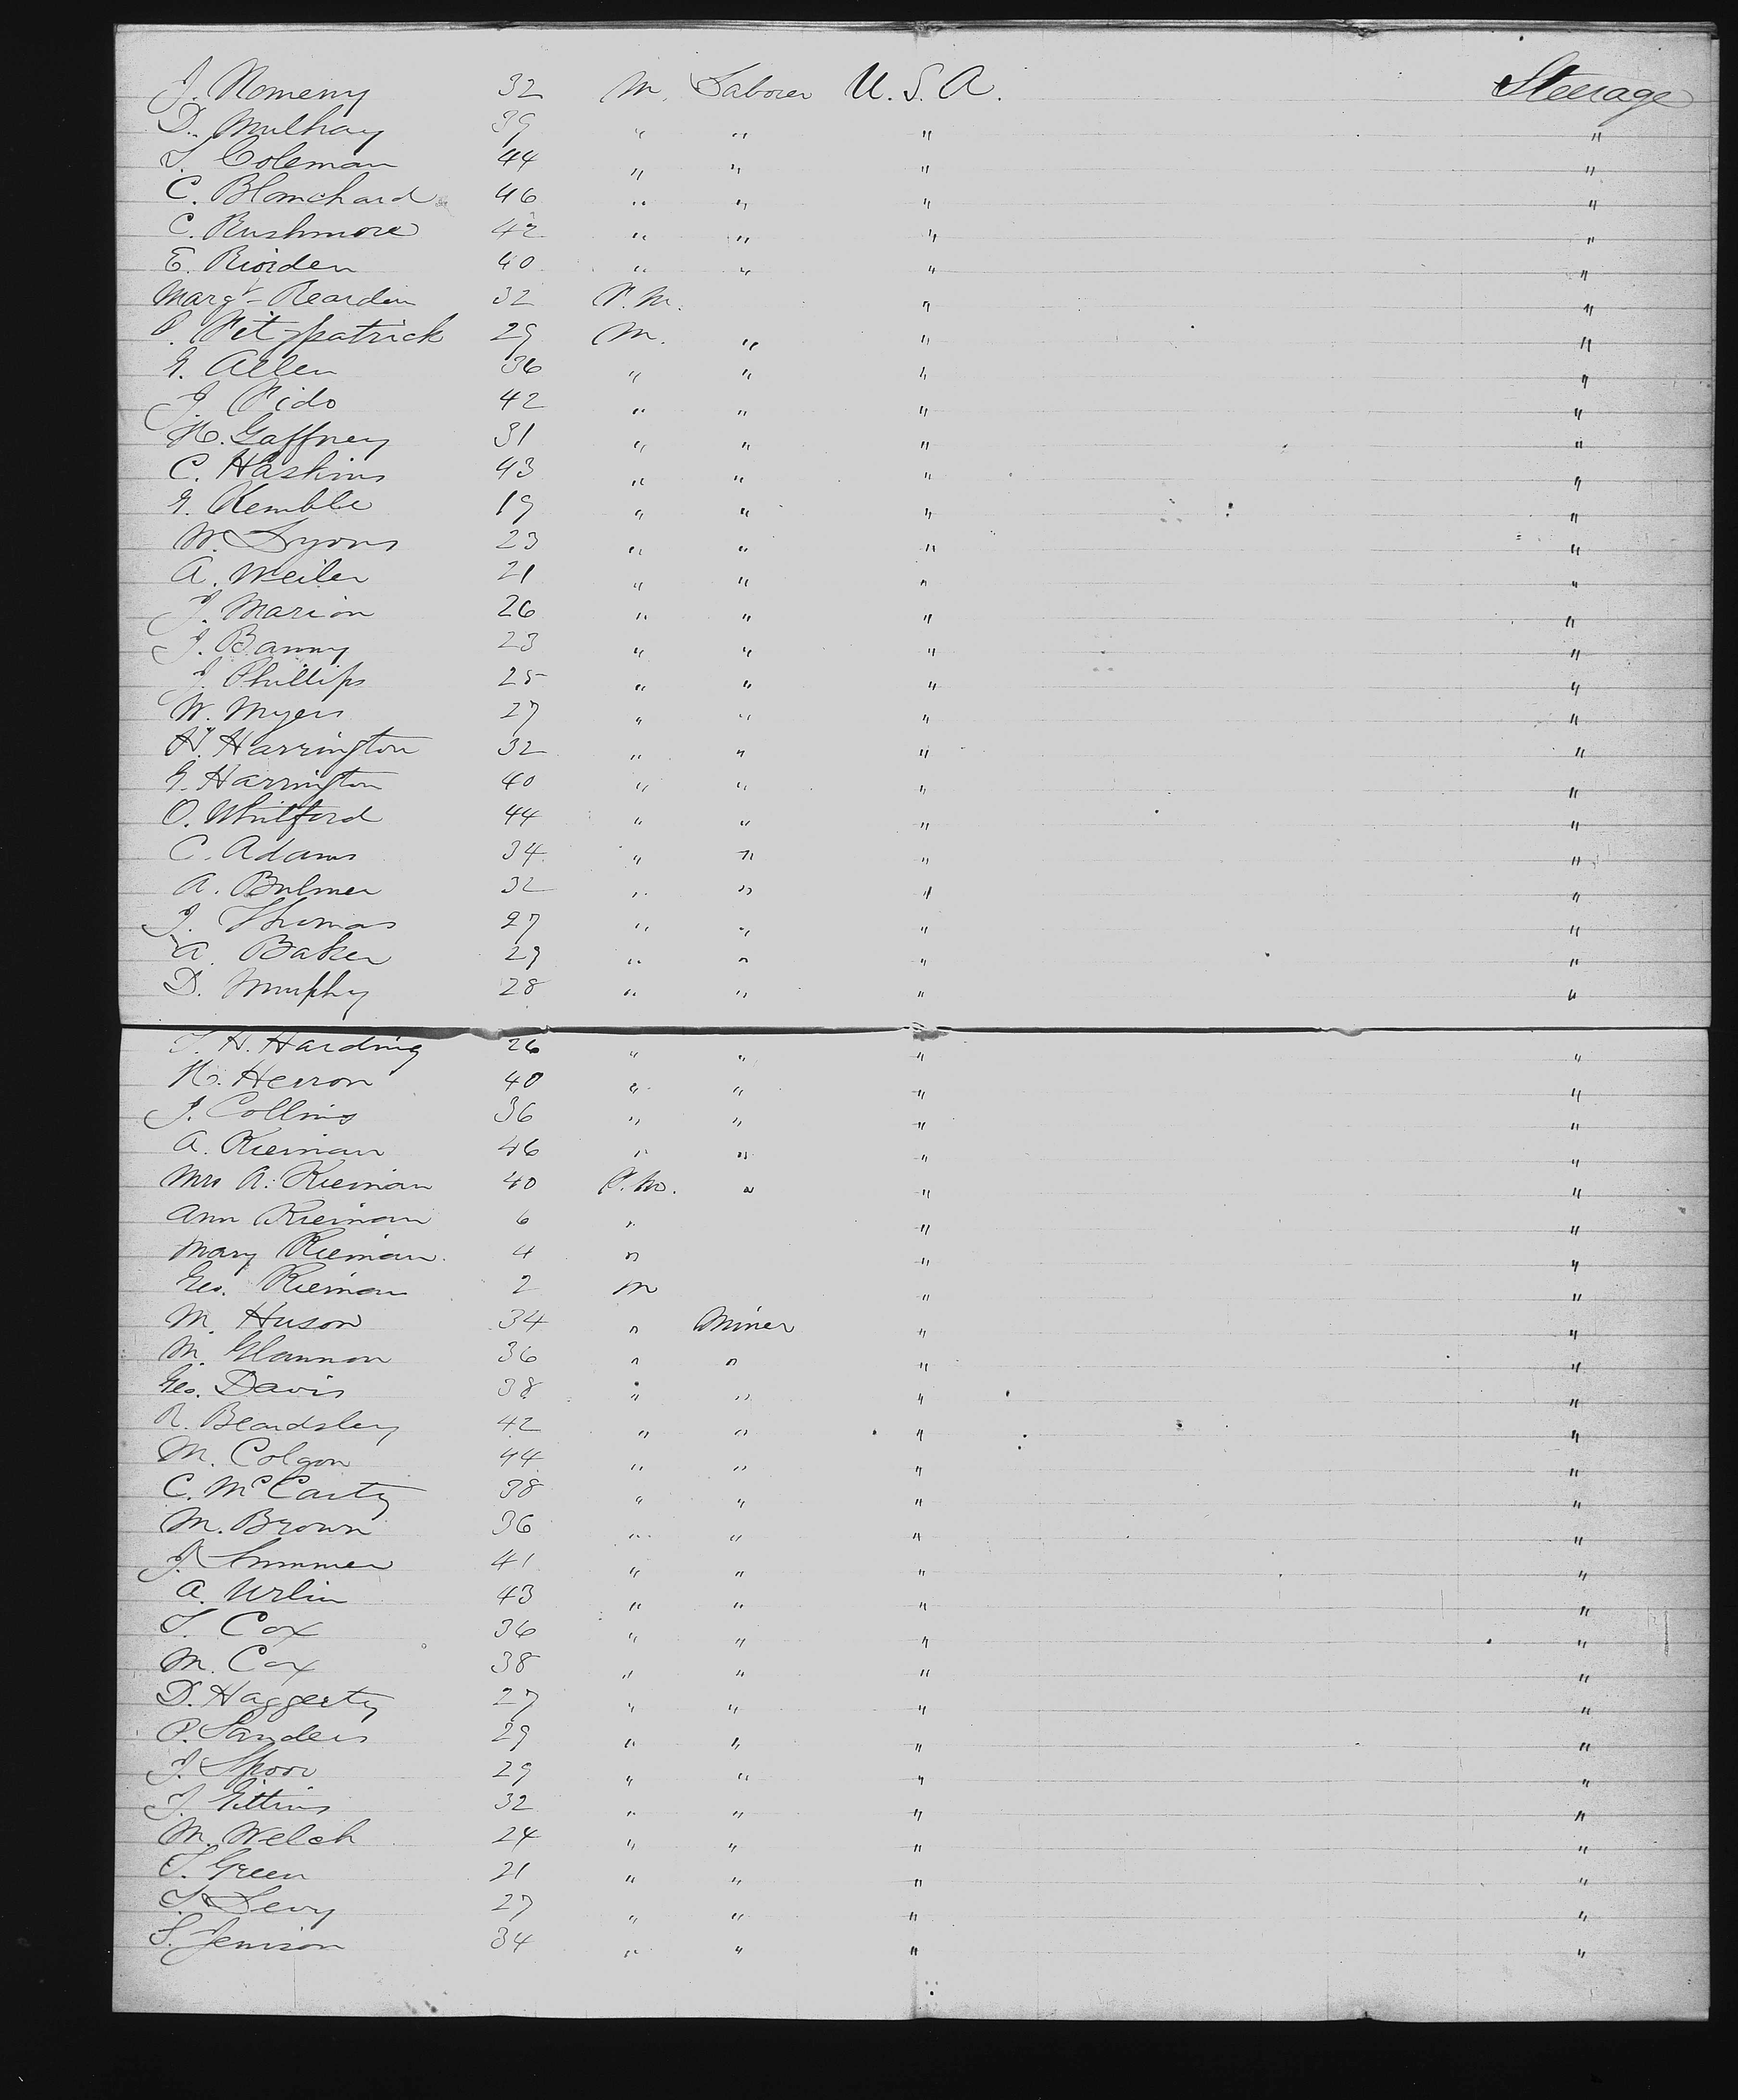 J. Nomeny 32 M. Laborer U.S.A. Steerage
D. Mulhay 39 " " " "
T. Coleman 44 " " " "
C. Blanchard 46 " " " "
C. Rushmore 42 " " " "
E. Riorden 40 " " " "
Margt Rearden 32 F.M. " "
P. Fitzpatrick 29 M. " " "
G. Allen 36 " " " "
J. Fido 42 " " " "
N. Gaffney 31 " " " "
C. Haskins 43 " " " "
G. Kemble 19 " " " "
W. Lyons 23 " " " "
A. Weiler 21 " " " "
J. Marion 26 " " " "
J. Banny 23 " " " "
J. Phillips 25 " " " "
W. Myers 27 " " " "
H. Harrington 32 " " " "
G. Harrington 40 " " " "
O. Whitford 44 " " " "
C. Adams 34 " " " "
A. Bulmer 32 " " " "
J. Thomas 27 " " " "
A. Baker 29 " " " "
D. Murphy 28 " " " "
T. H. Harding 26 " " " "
N. Herron 40 " " " "
J. Collins 36 " " " "
A. Rieman 46 " " " "
Mrs A. Rieman 40 F.M. " " "
Ann Rieman 6 " " "
Mary Rieman 4 " " "
Geo. Rieman 2 M " "
M. Huson 34 " Miner " "
M. Glannon 36 " " " "
Geo. Davis 38 " " " "
R. Beardsley 42 " " " "
M. Colgan 44 " " " "
C. McCarty 38 " " " "
M. Brown 36 " " " "
J. Summer 41 " " " "
A. Urlin 43 " " " "
T. Cox 36 " " " "
M. Cox 38 " " " "
D. Haggerty 27 " " " "
P. Sanders 29 " " " "
J. Spoor 29 " " " "
J. Gittins 32 " " " "
M. Welch 24 " " " "
T. Green 21 " " " "
T. Levy 27 " " " "
S. Jenison 34 " " " "